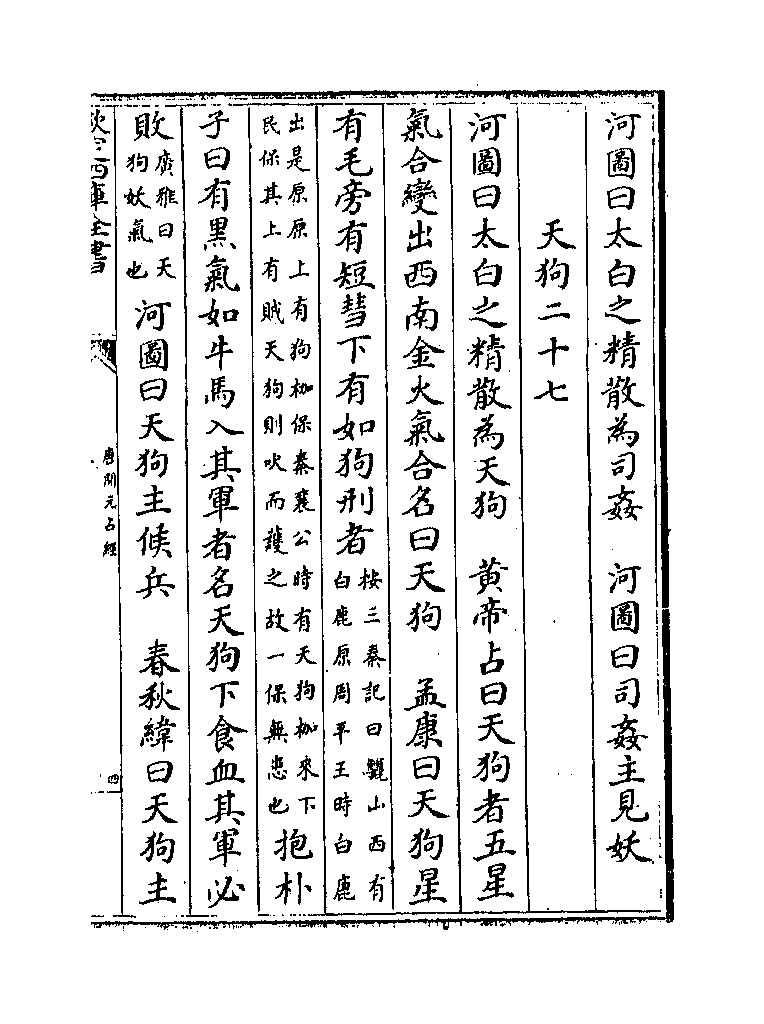 河圖曰太白之精散為司姦　河圖曰司姦主見妖
天狗二十七
河圖曰太白之精散為天狗　黄帝占曰天狗者五星
氣合變出西南金火氣合名曰天狗　孟康曰天狗星
有毛旁有短彗下有如狗刑者按三秦記曰驪山西有
白鹿原周平王時白鹿
出是原原上有狗枷保秦襄公時有天狗枷來下
民保其上有賊天狗則吠而護之故一保無患也抱朴
子曰有黑氣如牛馬入其軍者名天狗下食血其軍必
敗廣雅曰天
狗妖氣也河圖曰天狗主候兵　春秋緯曰天狗主
欽定四庫全書
唐開元占經
四